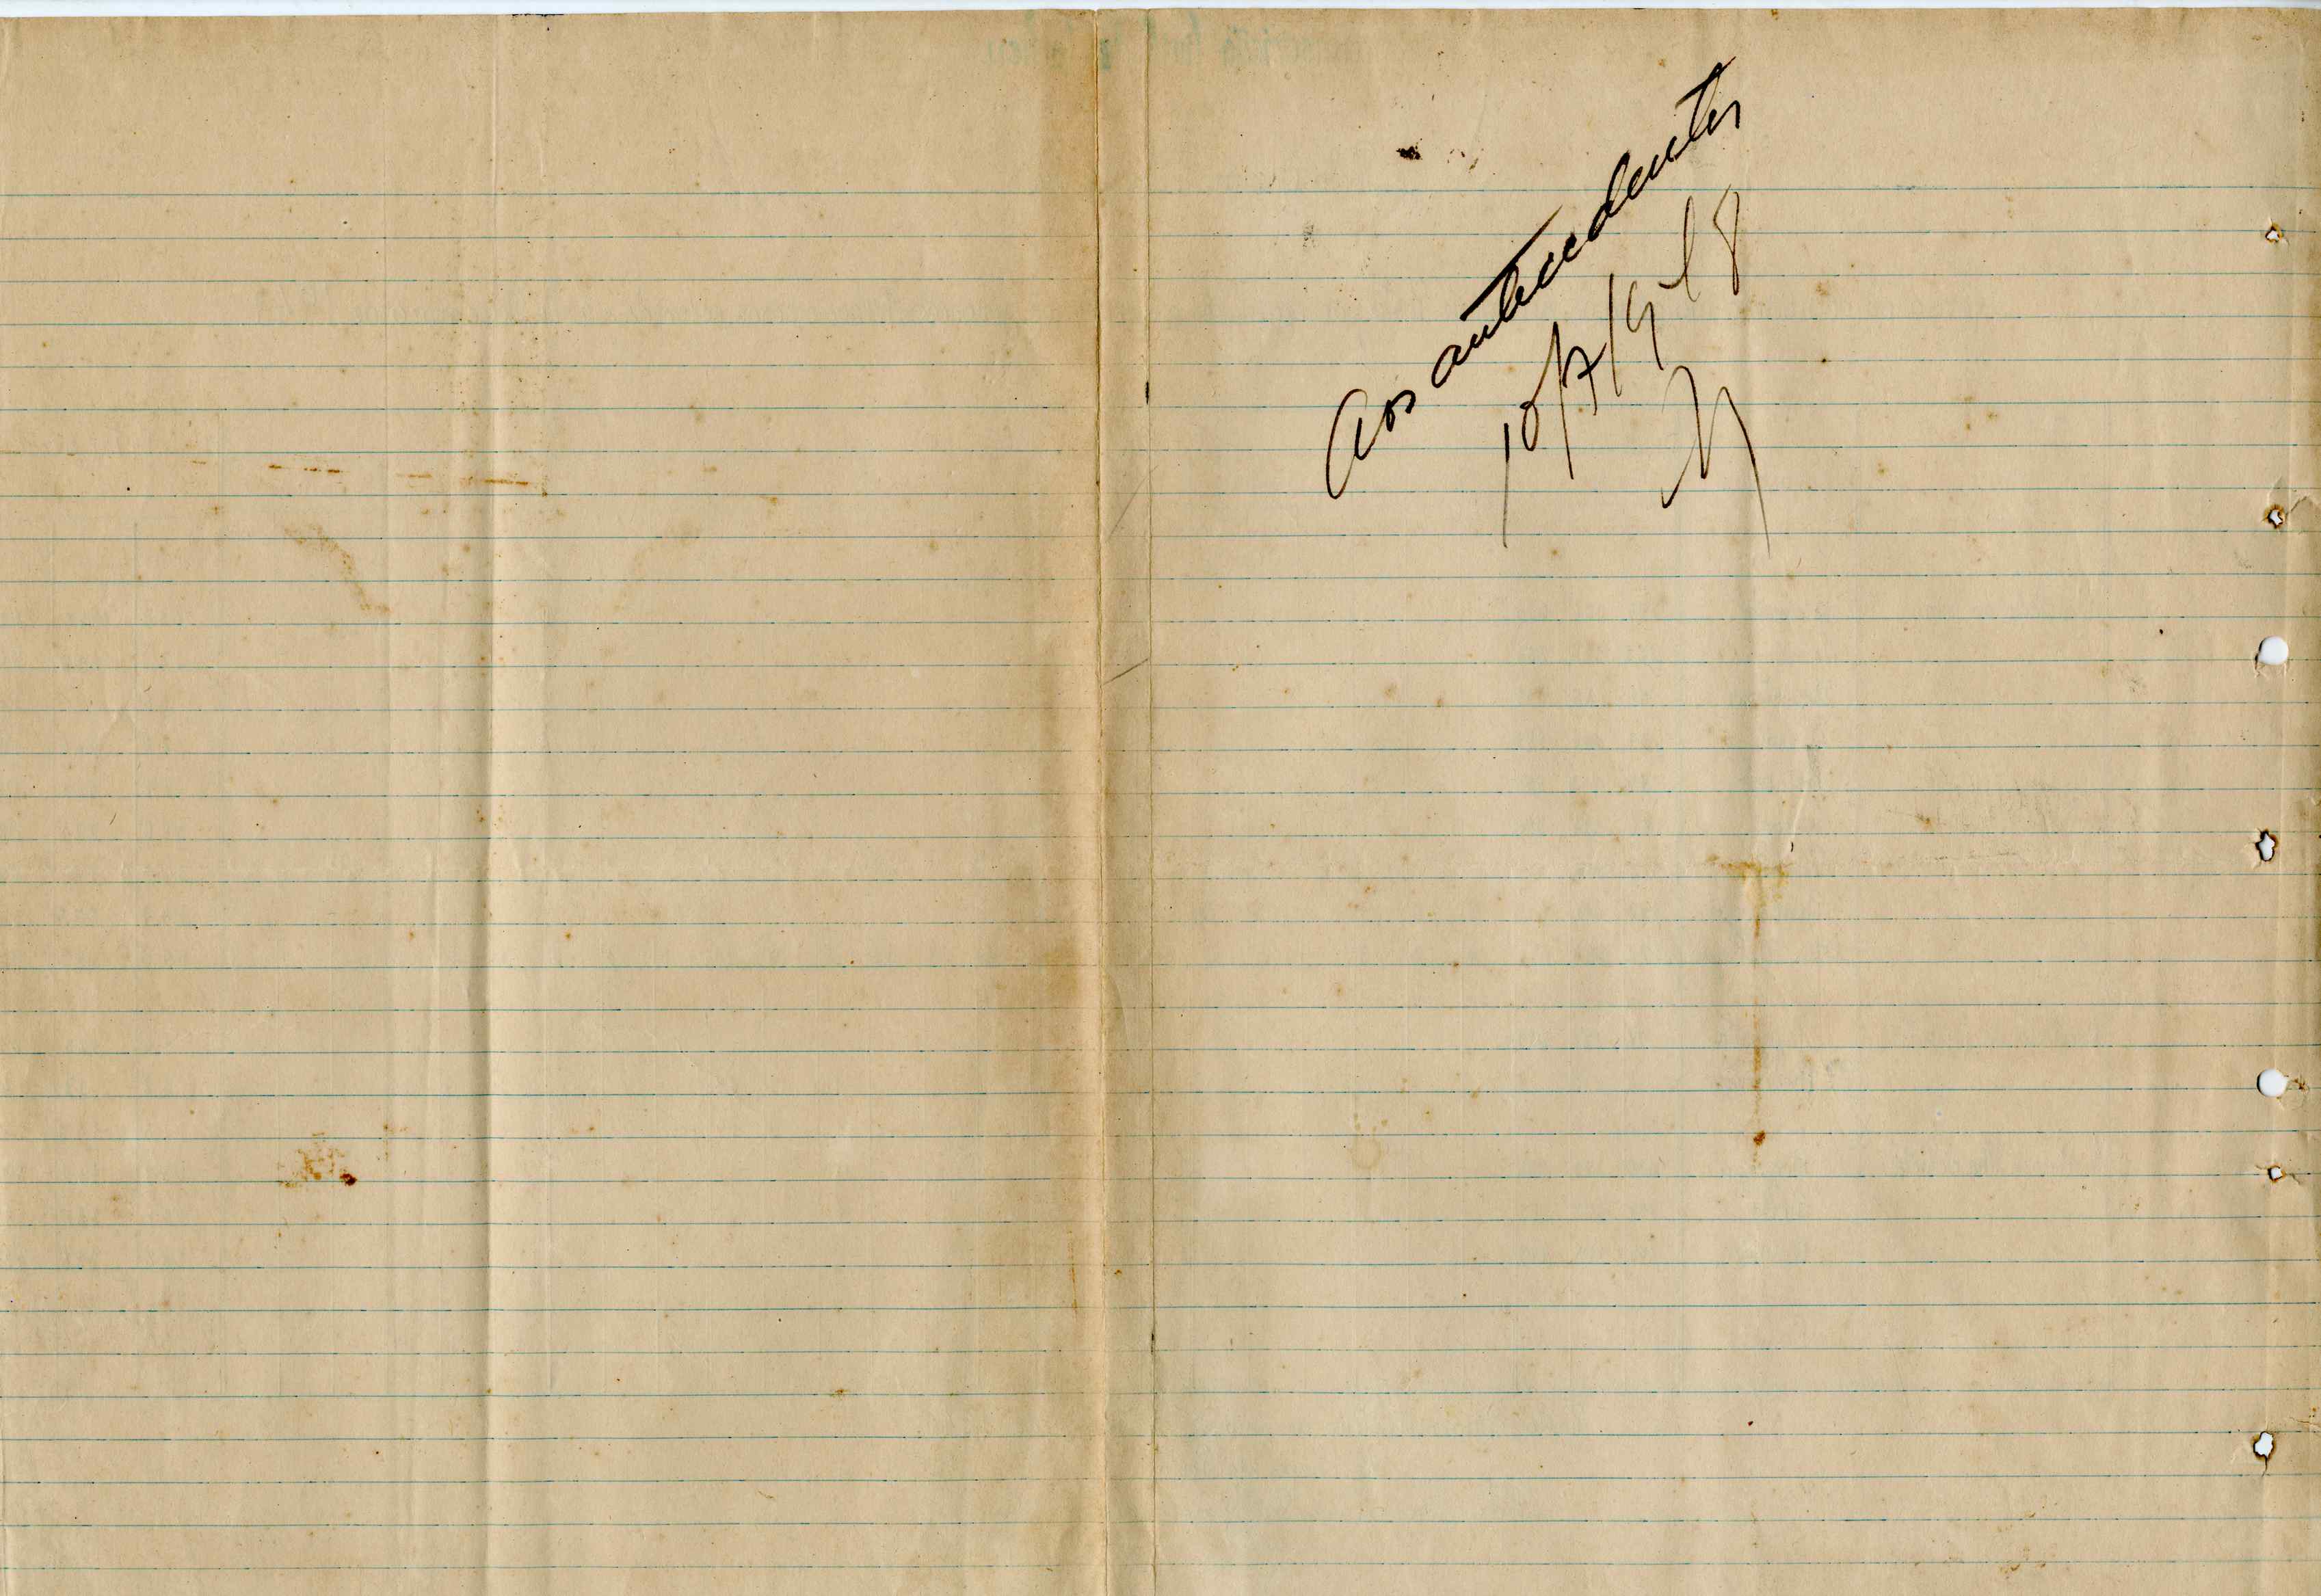 Aos antecedentes
10/7/918